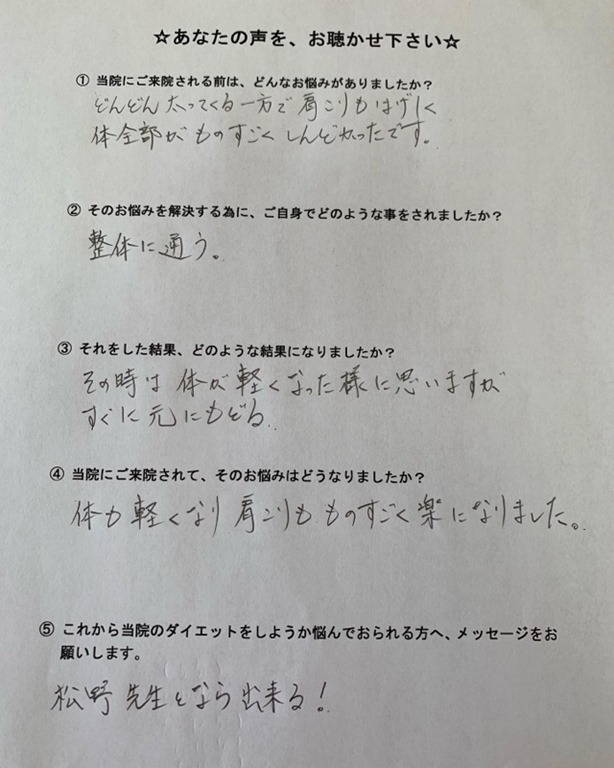 ☆あなたの声を、お聴かせ下さい☆
① 当院にご来院される前は、どんなお悩みがありましたか？
どんどん太ってくる一方で肩こりもはげしく
体全部がものすごくしんどかったです。
② そのお悩みを解決する為に、ご自身でどのような事をされましたか？
整体に通う。
③ それをした結果、どのような結果になりましたか？
その時は体が軽くなった様に思いますが
すぐに元にもどる.
④ 当院にご来院されて、そのお悩みはどうなりましたか？
体も軽くなり肩こりもものすごく楽になりました。
⑤ これから当院のダイエットをしようか悩んでおられる方へ、メッセージをお
願いします。
松野先生となら出来る！